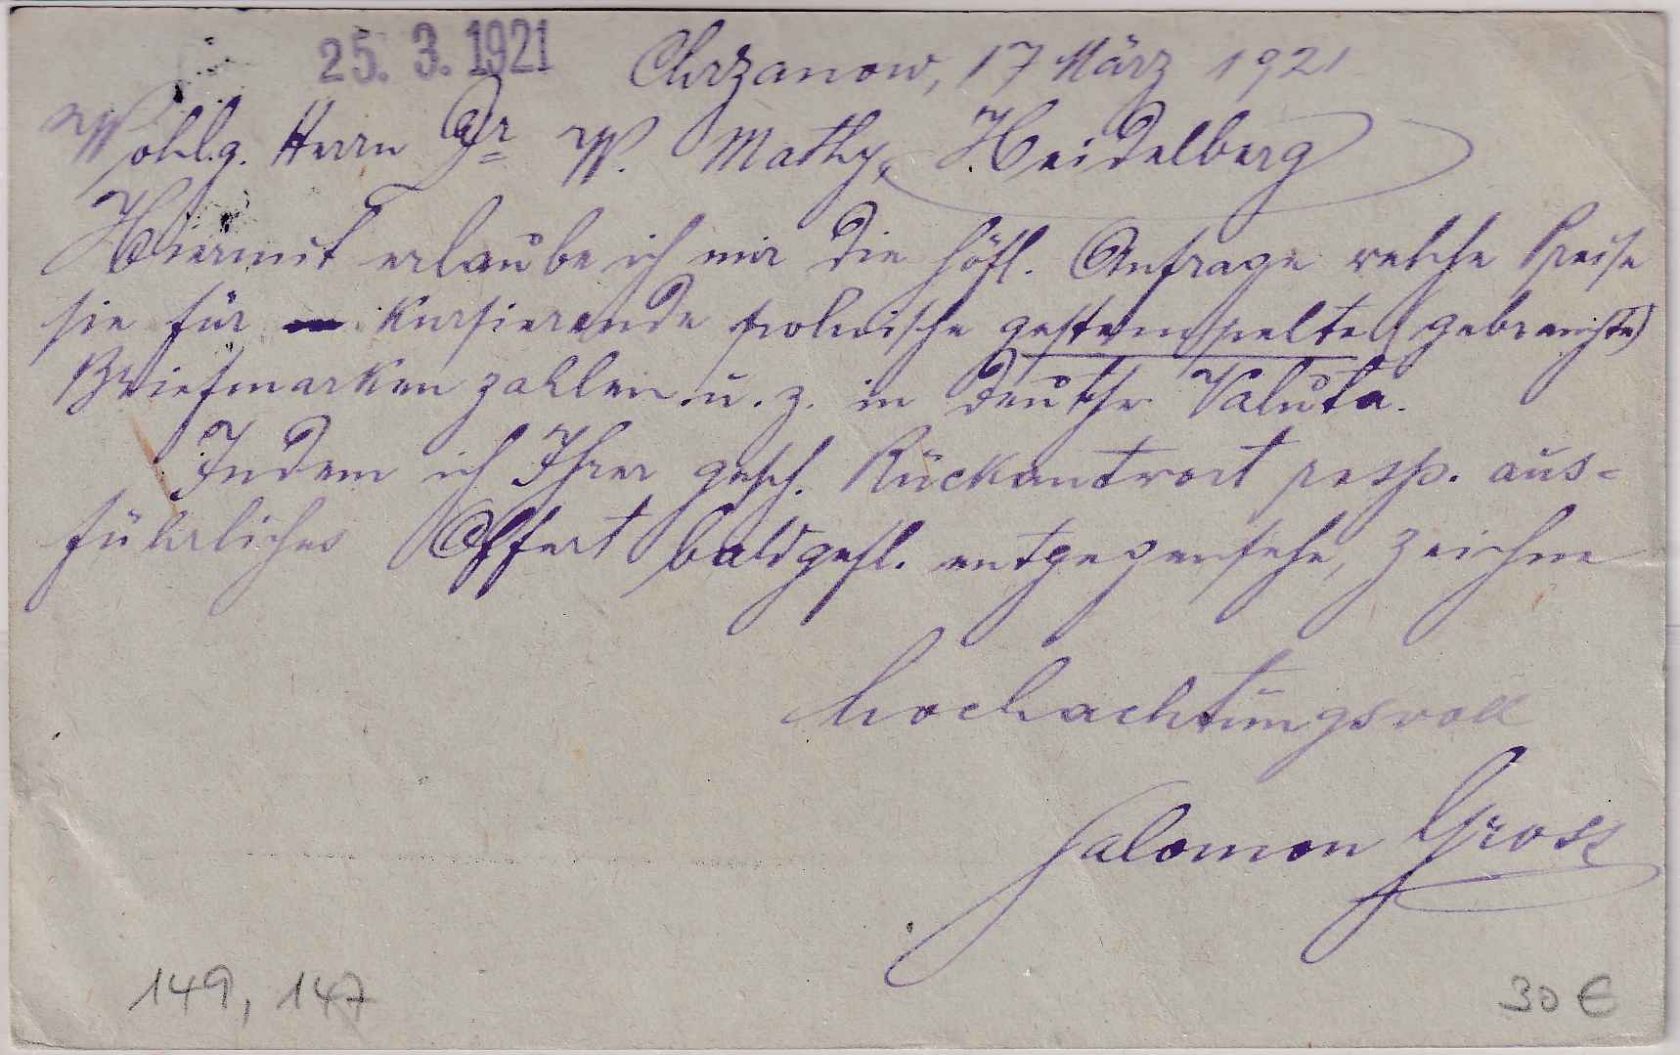 25. 3. 1921 Chrzanow, 17 März 1921
Wohlg. Herrn Dr W. Mathy, Heidelberg
Hiermit erlaube ich mir die höfl. Anfrage welche Preise
sie für kursierende polnische gestempelte (gebrauchte)
Briefmarken zahlen u. z. in deutscher Valuta.
Indem ich Ihrer gesch. Rückantwort resp. aus=
führliches Offert baldgefl. entgegensehe, zeichne
hochachtungsvoll
Salomon Gross
149, 147 30 €